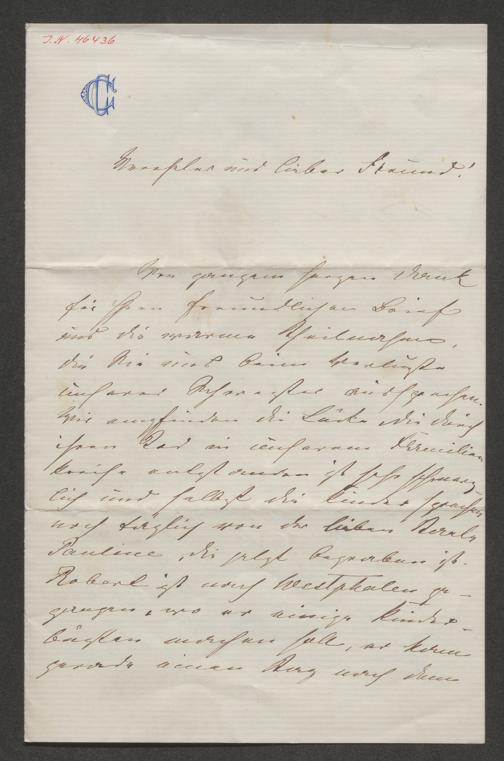 I.N. 46436
CC
Verehrter und lieber Freund!
Von ganzem Herzen Dank
für Ihren freundlichen Brief
und die warme Theilnahme,
die Sie uns beim Verluste
unserer Schwester aussprechen.
Wir empfinden die Lücke die durch
ihren Tod in unserem Familien
kreise entstanden ist sehr schmerz
lich und selbst die Kinder sprechen
noch täglich von der lieben Tante
Pauline, die jetzt begraben ist.
Robert ist nach Westphalen ge-
gangen, wo er einige Kinder-
büsten machen soll, er kam
gerade einen Tag nach dem